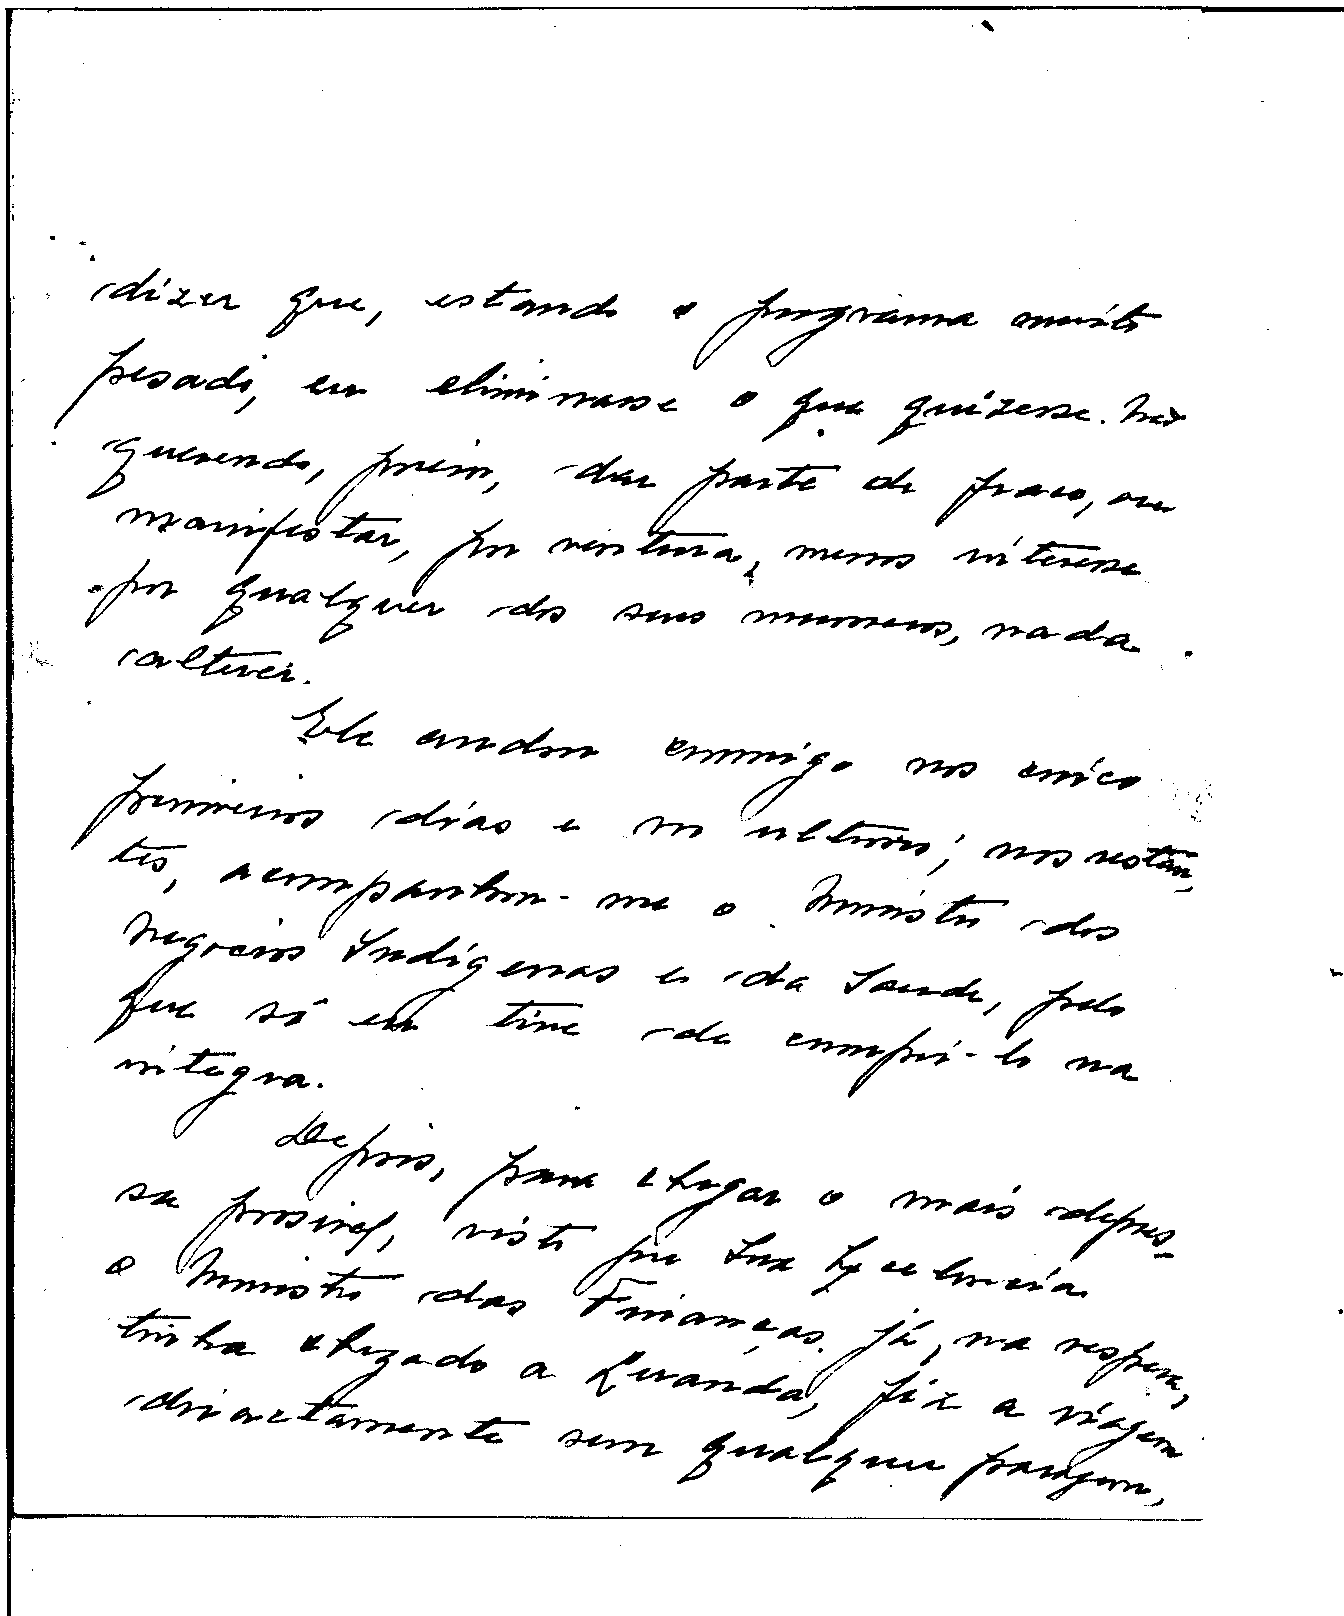 dizer que, estando o programa muito
pesado, eu eliminasse o que quizesse. Não
querendo, porém, dar parte de fraco, ou
manifestar, por ventura, menos interesse
por qualquer dos seus numeros, nada
alterei.
Ele andou commigo nos cinco
primeiros dias e no ultimo; nos restan-
tes, acompanhou-me o Ministro dos
Negocios Indigenas e da Saude, pelo
que só eu tive de cumpri-lo na
integra.
Depois, para chegar o mais depres-
sa possivel, visto que Sua Excelencia
o Ministro das Finanças já, na vespera,
tinha chegado a Luanda, fiz a viagem
directamente sem qualquer paragem,